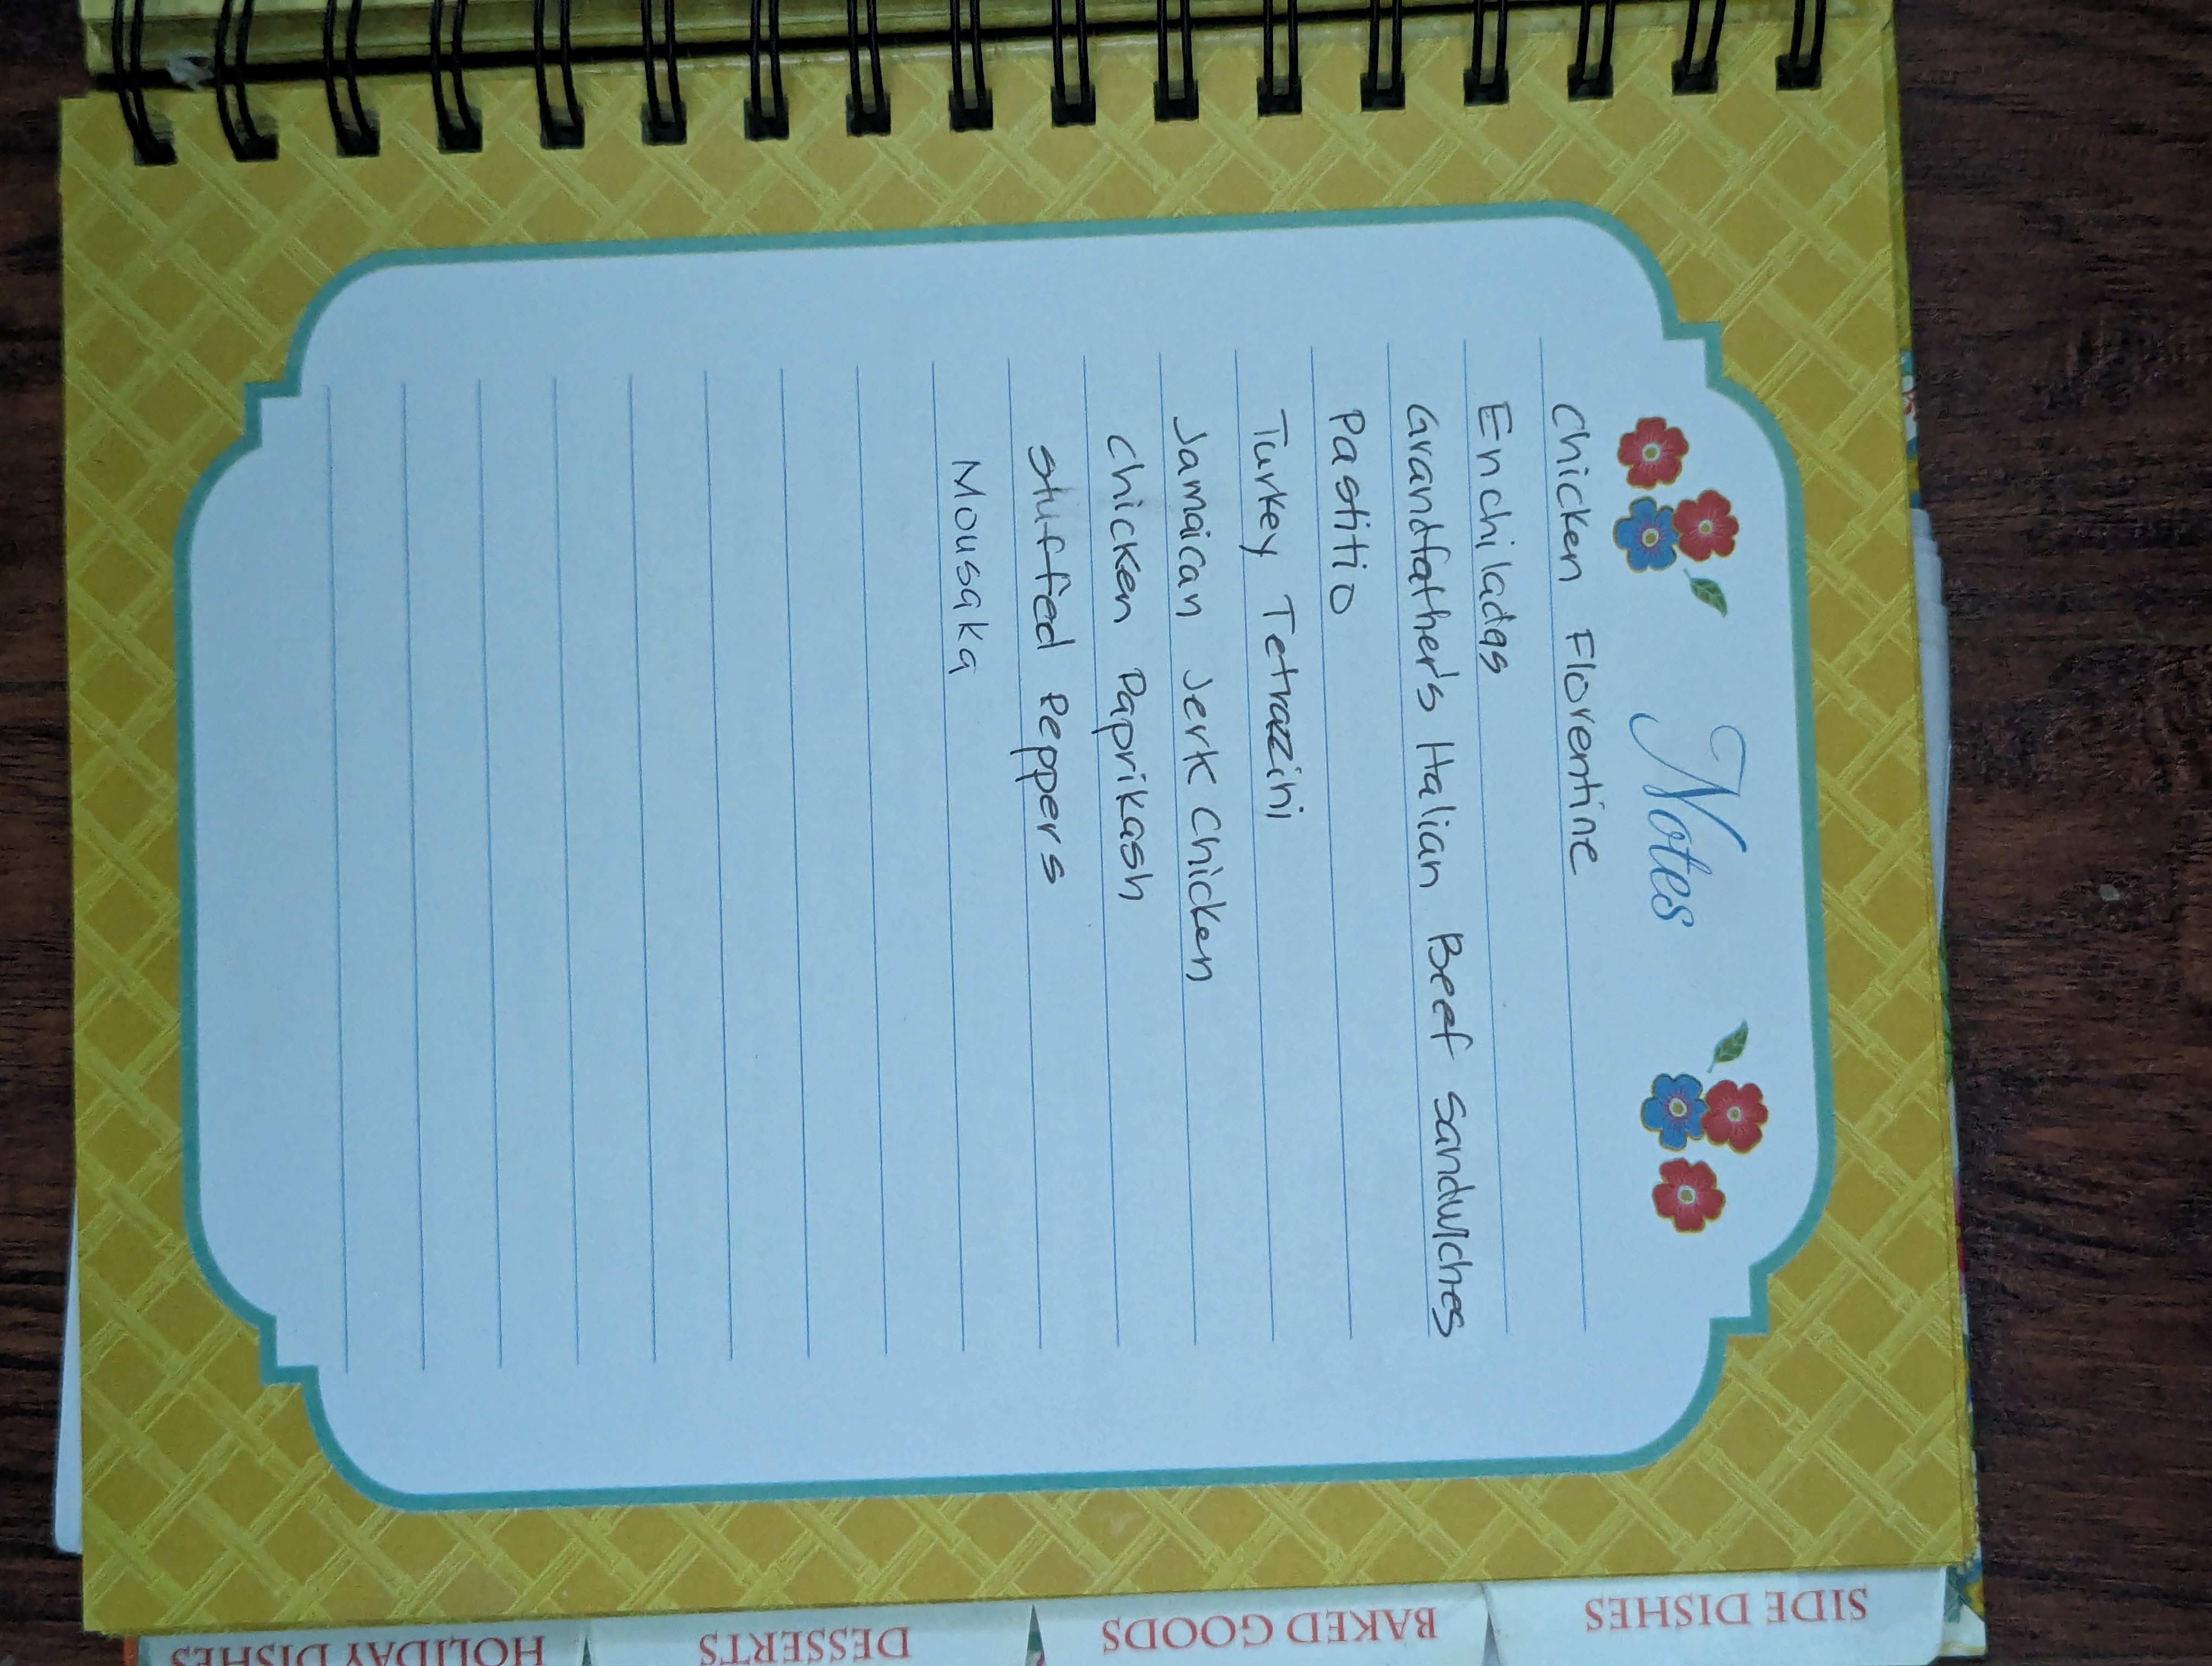 Notes
Chicken Florentine
Enchiladas
Grandfather's Italian Beef Sandwiches
Pastitio
Turkey Tetrazzini
Jamaican Jerk Chicken
Chicken Paprikash
Stuffed Peppers
Mousaka
SIDE DISHES
BAKED GOODS
DESSERTS
HOLIDAY DISHES